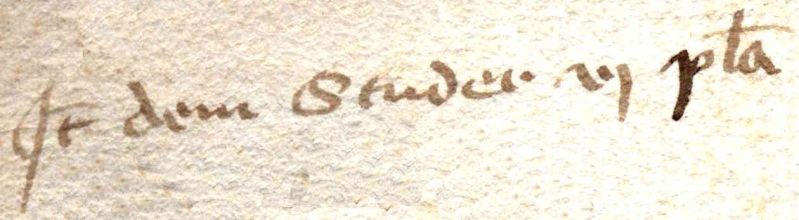 It dem Studer vj pła